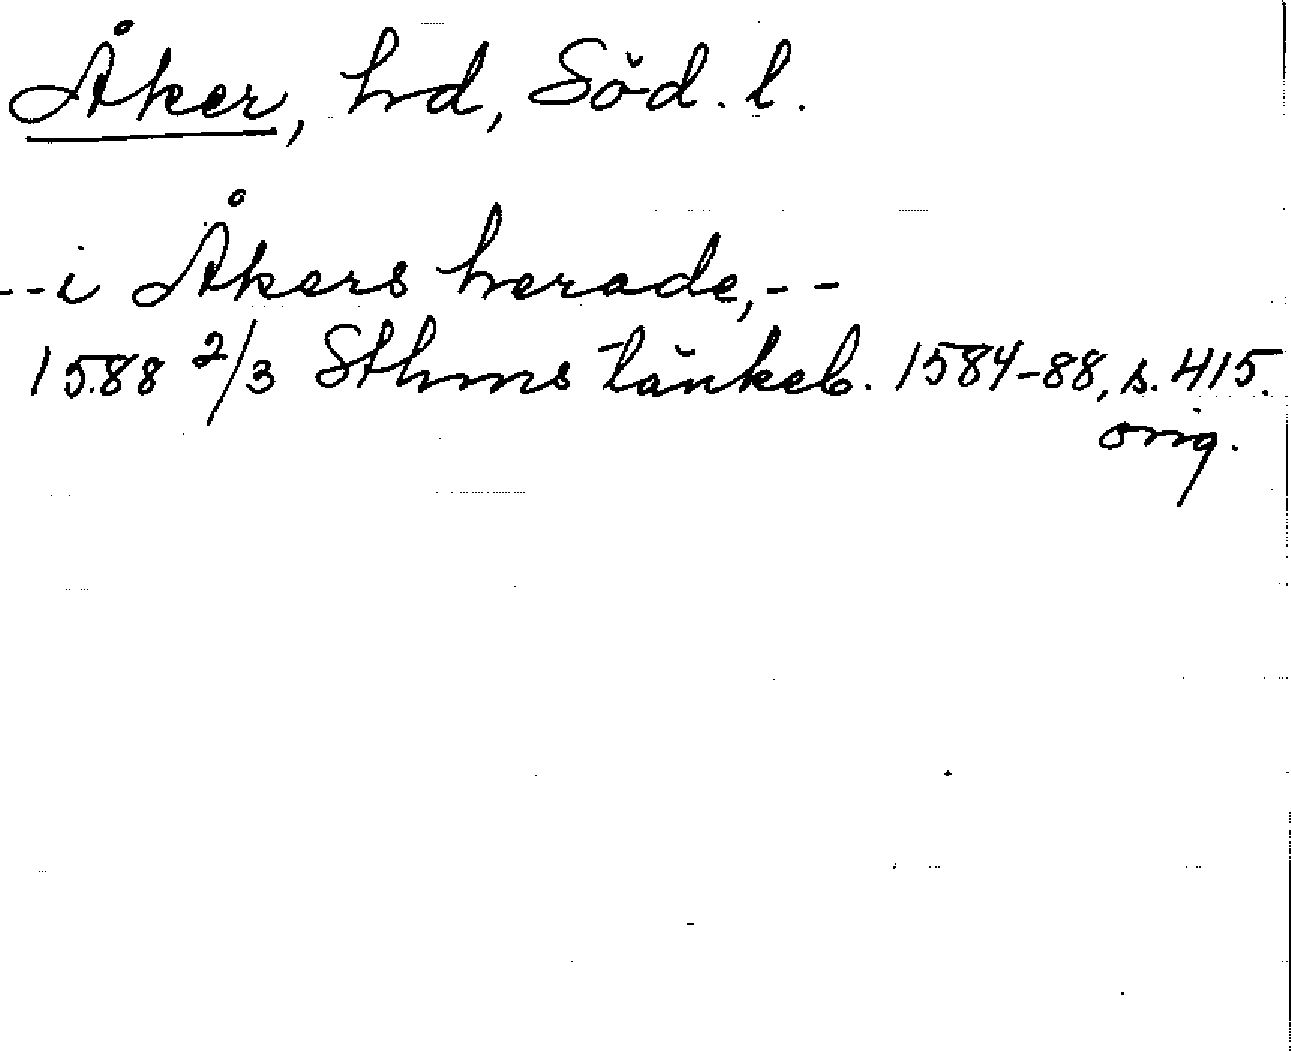 Åker, hd, Söd. l.
-- i Åkers herade, --
1588 2/3 Sthms tänkeb. 1584-88, s. 415.
orig.